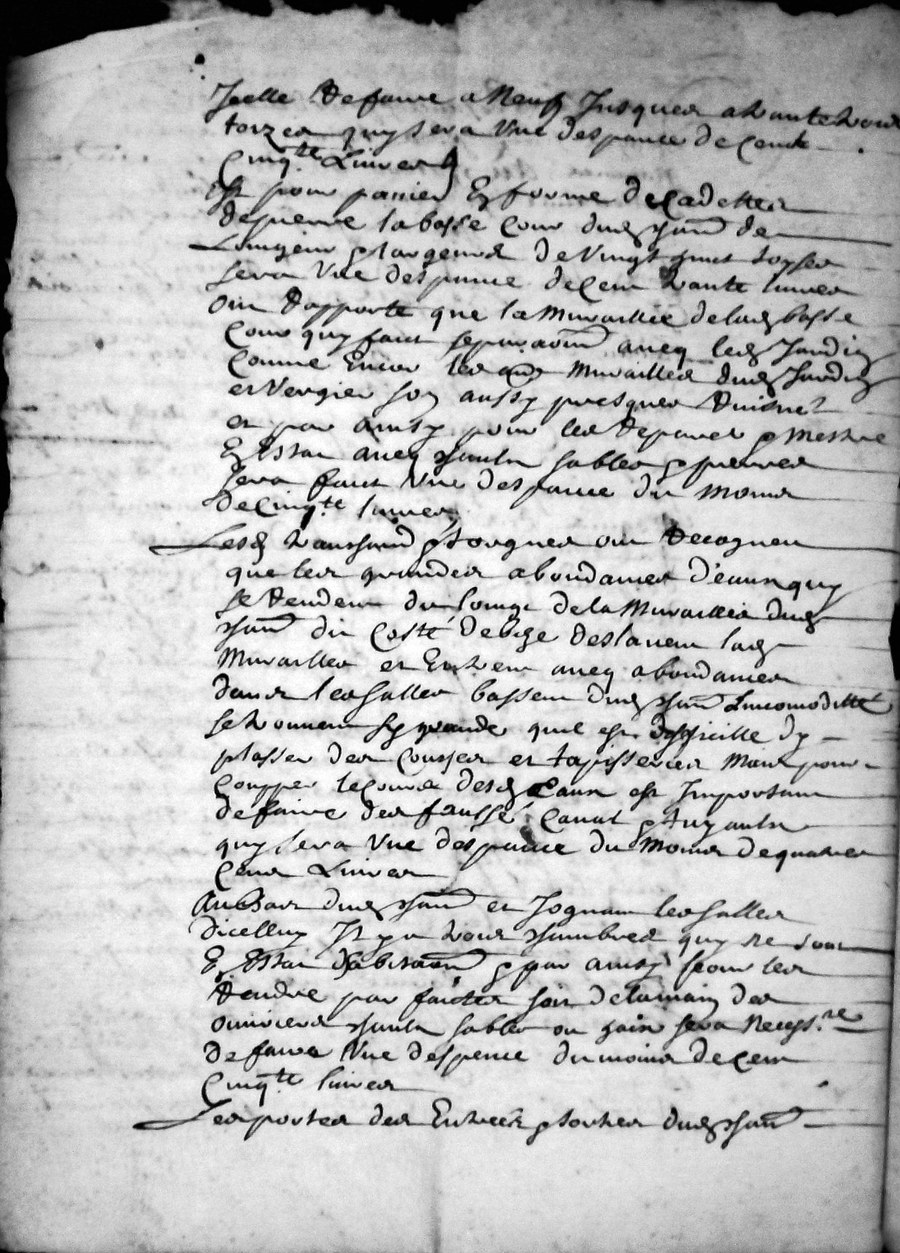 Icelle Refaire a Neuf Jusques a hauteur
torzes quy sera Une despance de Cent
Cinqte Livres
Et pour pavier En forme de Cadettes
de pierre la basse Cour dud chaun de
Longeur & largeur de Vingt huit toyses
sera Une despance de Cent trante livres
Ont Rapporté que la Muraillie de lad basse
Cour quy fait separaon avecq led Jardin
Comme Encor les aues Murailles dud Jardin
et Vergier son aussy presques Ruisnes
et par ainsy pour les Reparer & Mestre
En Estat avecq chauln sables & pierres
sera fait Une despance du Moins
de Cinqte livres
Lesd & Torgnes ont Recognu
que les grandes abondances d'eaux quy
se Rendent du loing de la Muraillie dud
chaun du Costé de bize deslavent lad
Muraillie et Entrent avecq abondances
dans les salles basses dud chaun Lincomoditté
se trouvent sy grande quil est difficille dy
plasser des Cousses et tapisseries Mais pour
Coupper le Cours desd Eaux est Important
de faire des faussé Canal & Auyaulx
quy sera Une despance du Moins de quatre
Cens Livres
Au bas dud chaun et Joignant les salles
dicelluy Il y a trois chambres quy ne sont
En Estat dabitaon & par ainsy pour les
Rendre par faictes soit de la main des
ouvriers chauln sables ou gain sera Necessre
de faire Une despence du moins de Cent
Cinqte livres
Les portes des Entrées & sorties dud chaun